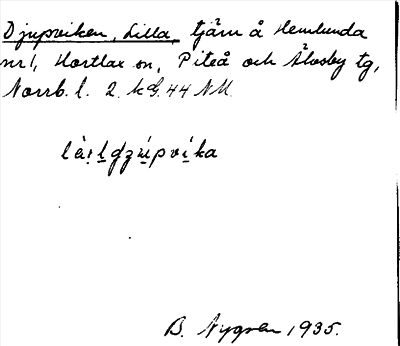 Djupviken, Lilla, tjärn å Hemlunda
nr 1, Hortlax sn, Piteå och Älvsby tg,
Norrb. l. 2. k G. 44 NM.
B. Nygren 1935.